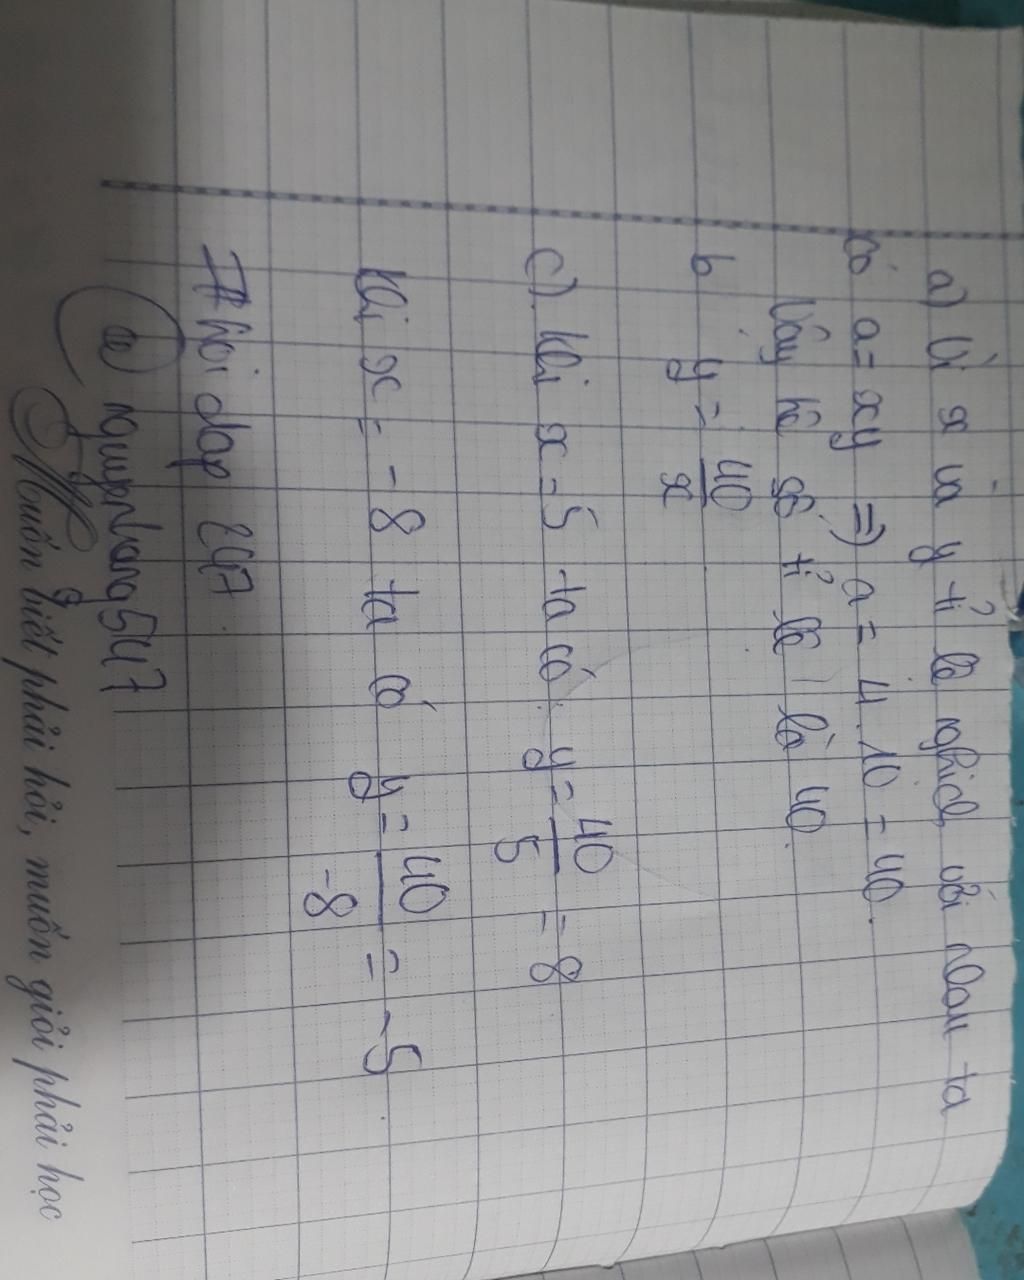 a) Vì x và y tỉ lệ nghịch với nhau ta
có a = xy => a = 4.10 = 40.
Vậy hệ số tỉ lệ là 40.
b y = 40/x
c) khi x = 5 ta có y = 40/5 = 8
khi x = -8 ta có y = 40/-8 = -5
# hoi dap 247
@ nguynhang5417
Muốn biết phải hỏi, muốn giỏi phải học